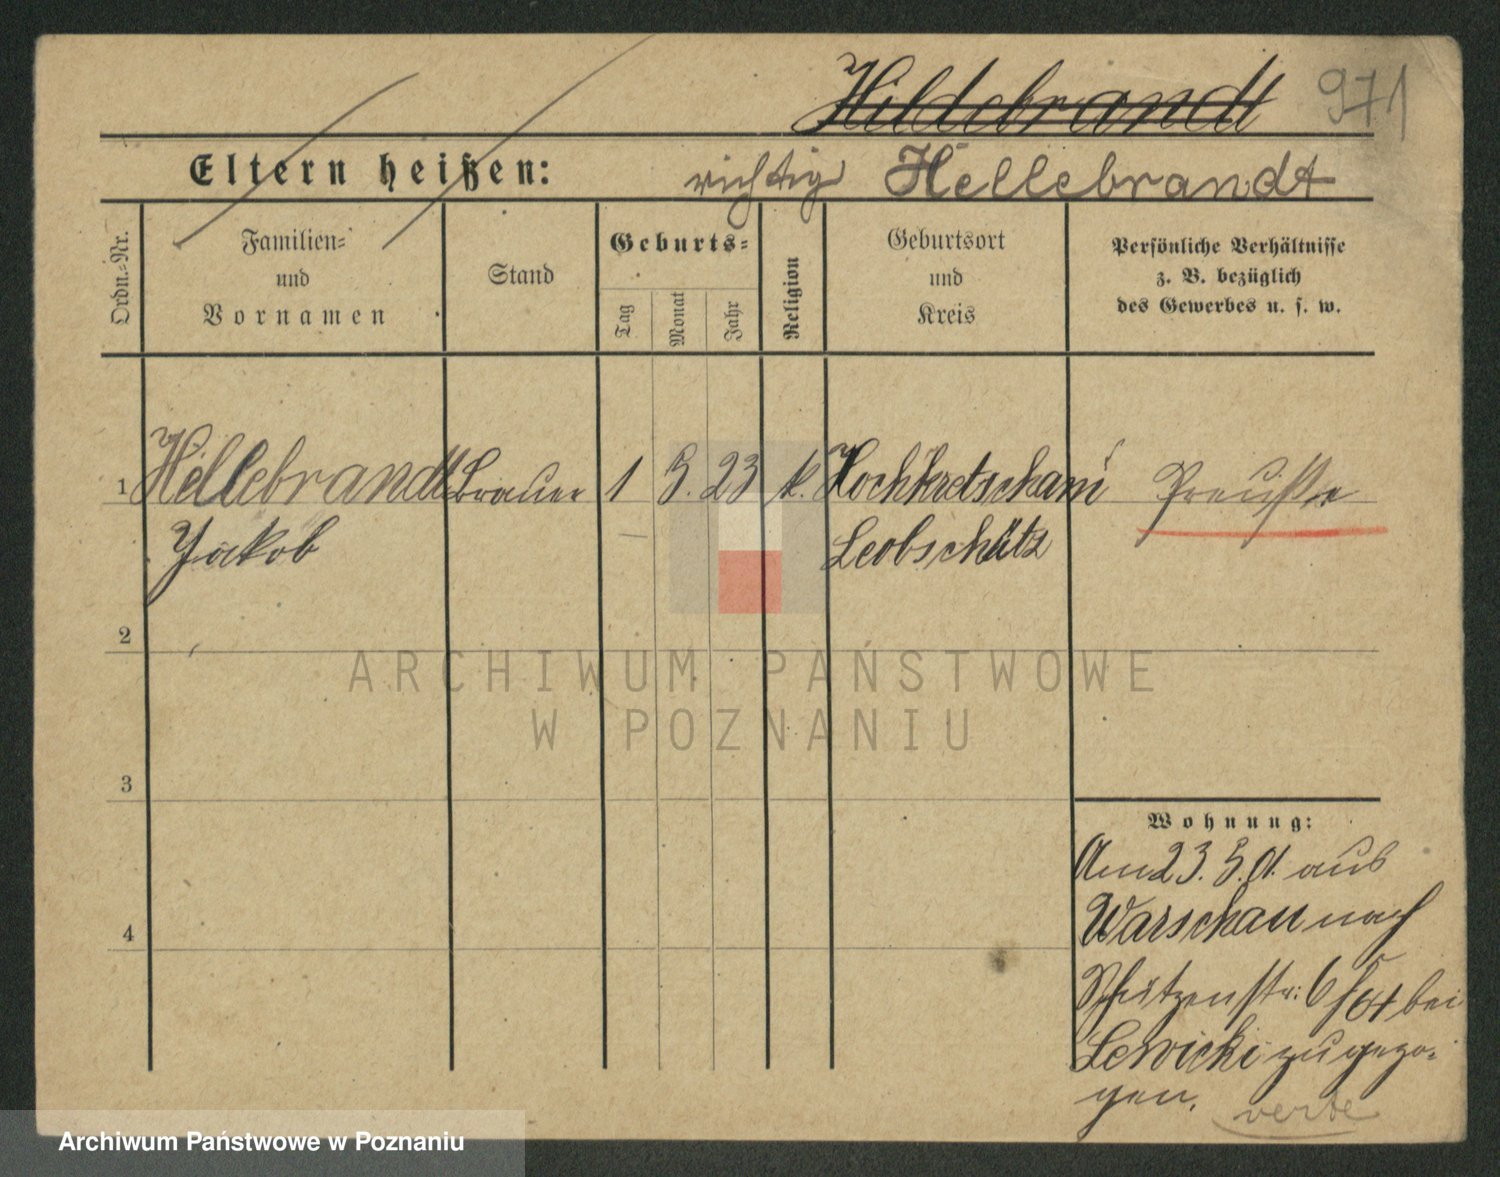 Hildebrandt
971
Eltern heißen:
richtig Hellebrandt
Ordn.-Nr.
Familien-
und
Vornamen
Stand
Geburts-
Tag
Monat
Jahr
Religion
Geburtsort
und
Kreis
Persönliche Verhältnisse
z. B. bezüglich
des Gewerbes u. s. w.
1 Hellebrandt Brauer 1 5. 23 k. Hochkretscham Preuße
Jakob Leobschütz
2
3
4
Wohnung:
Am 23. 5. 01. aus
Warschau nach
Schützenstr: 6 bei
Lewicki zugezo-
gen.
verte
ARCHIWUM PAŃSTWOWE
W POZNANIU
Archiwum Państwowe w Poznaniu